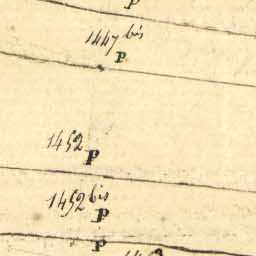 P
1447 bis
P
1452
P
1452 bis
P
P